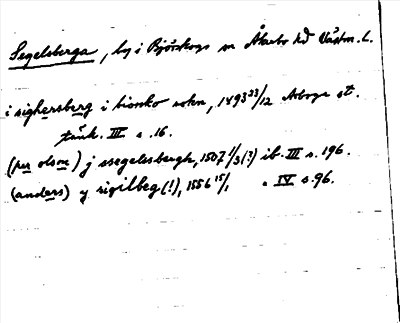 Segelsberga, by i Björskogs sn Åkerbo hd Västm. l.
i sighersberg i biorsko sokn, 1493 23/12 Arboga st.
tänk. III s. 16.
(per olson) j ssegelsbergh, 1507 1/3(?) ib. III s. 196.
(anders) y sigilbeg(!), 1556 15/1 " IV s. 96.